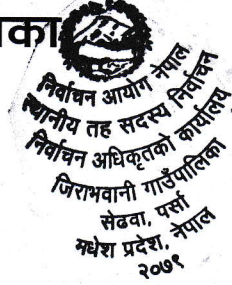 का
निर्वाचन आयोग नेपाल
स्थानीय तह सदस्य निर्वाचन
निर्वाचन अधिकृतको कार्यालय
जिराभवानी गाउँपालिका
सेढवा, पर्सा
मधेश प्रदेश, नेपाल
२०७९